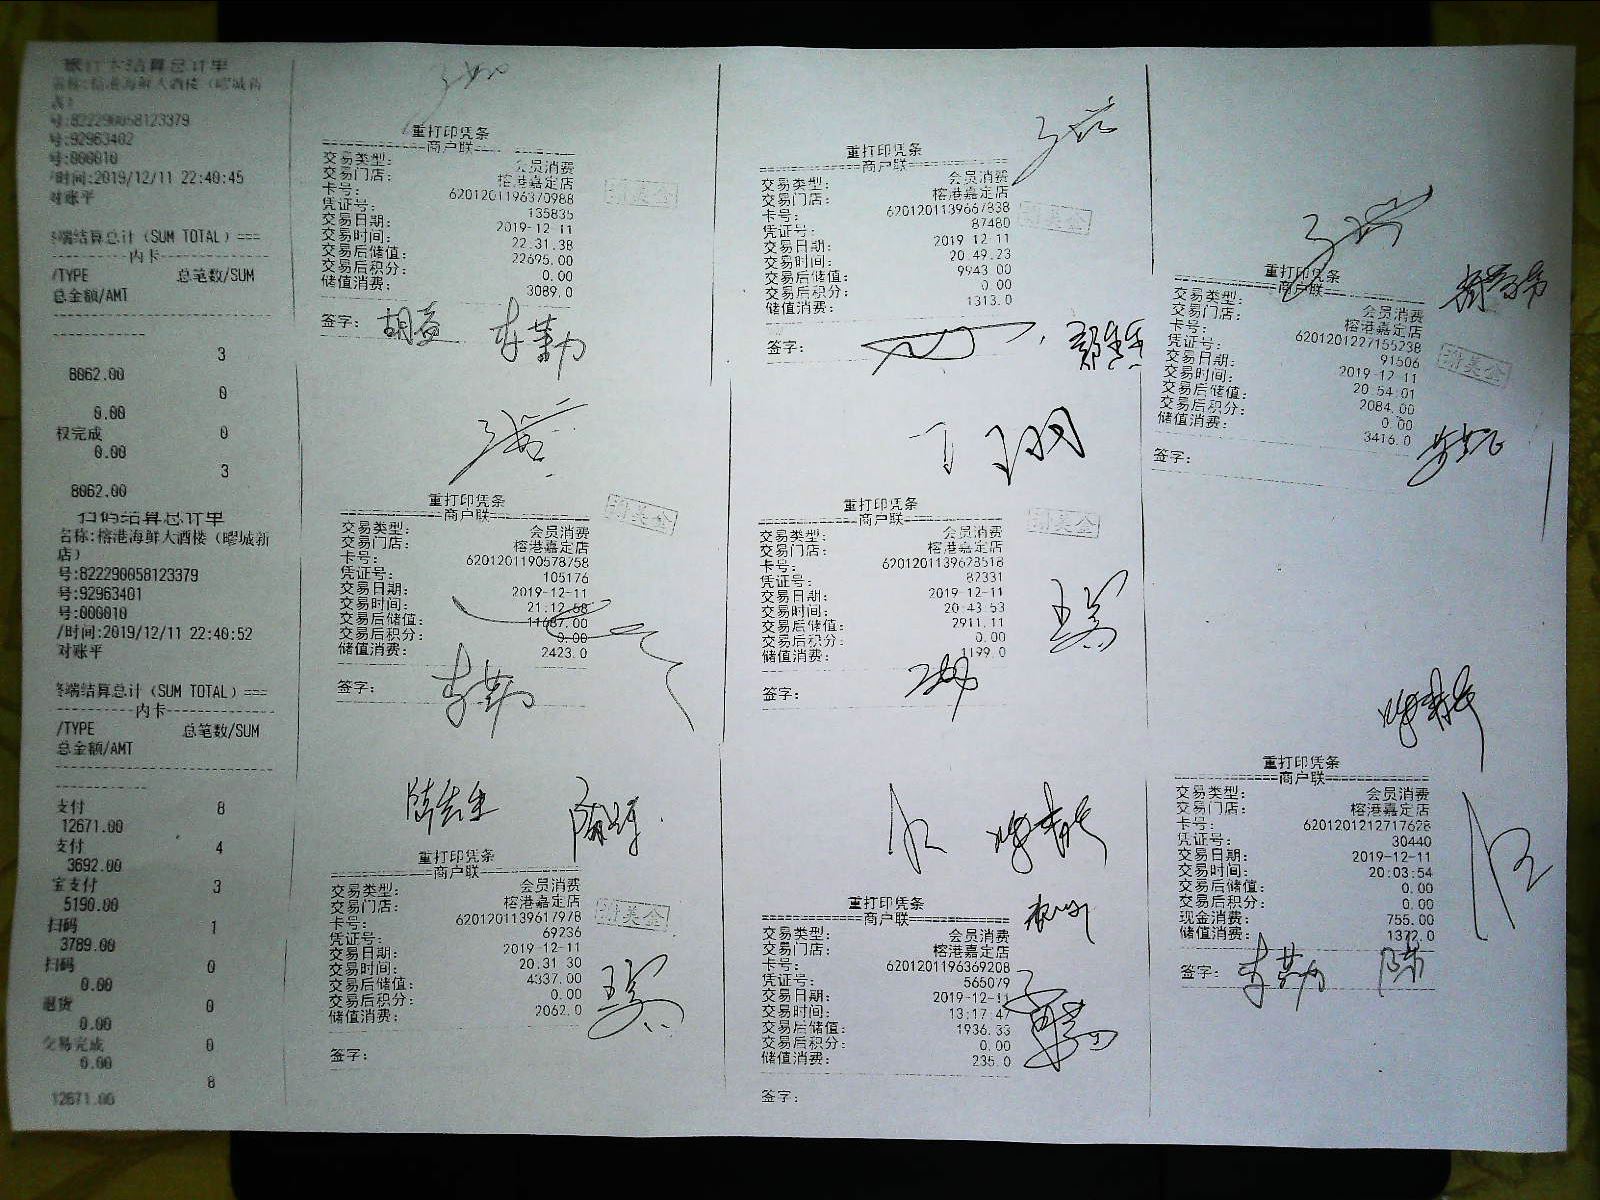 银行卡结算总计单
名称:榕港海鲜大酒楼（疁城新
店）
号:822290058123379
号:92963402
号:000010
/时间:2019/12/11 22:40:45
对账平
终端结算总计（SUM TOTAL）===
---------内卡---------
/TYPE 总笔数/SUM
总金额/AMT
3
8062.00
0
0.00
权完成 0
0.00
3
8062.00
扫码结算总计单
名称:榕港海鲜大酒楼（疁城新
店）
号:822290058123379
号:92963401
号:000010
/时间:2019/12/11 22:40:52
对账平
终端结算总计（SUM TOTAL）===
---------内卡---------
/TYPE 总笔数/SUM
总金额/AMT
支付 8
12671.00
支付 4
3692.00
宝支付 3
5190.00
扫码 1
3789.00
扫码 0
0.00
退货 0
0.00
交易完成 0
0.00
8
12671.00
重打印凭条
==========商户联==========
交易类型: 会员消费
交易门店: 榕港嘉定店
卡号: 6201201196370988
凭证号: 135835
交易日期: 2019-12-11
交易时间: 22:31:38
交易后储值: 22695.00
交易后积分: 0.00
储值消费: 3089.0
签字:
重打印凭条
==========商户联==========
交易类型: 会员消费
交易门店: 榕港嘉定店
卡号: 6201201190578758
凭证号: 105176
交易日期: 2019-12-11
交易时间: 21:12:58
交易后储值: 11687.00
交易后积分: 0.00
储值消费: 2423.0
签字:
陈先生
重打印凭条
==========商户联==========
交易类型: 会员消费
交易门店: 榕港嘉定店
卡号: 6201201139617978
凭证号: 69236
交易日期: 2019-12-11
交易时间: 20:31:30
交易后储值: 4337.00
交易后积分: 0.00
储值消费: 2062.0
签字:
重打印凭条
==========商户联==========
交易类型: 会员消费
交易门店: 榕港嘉定店
卡号: 6201201139667838
凭证号: 87480
交易日期: 2019-12-11
交易时间: 20:49:23
交易后储值: 9943.00
交易后积分: 0.00
储值消费: 1313.0
签字:
重打印凭条
==========商户联==========
交易类型: 会员消费
交易门店: 榕港嘉定店
卡号: 6201201139628518
凭证号: 82331
交易日期: 2019-12-11
交易时间: 20:43:53
交易后储值: 2911.11
交易后积分: 0.00
储值消费: 1199.0
签字:
重打印凭条
==========商户联==========
交易类型: 会员消费
交易门店: 榕港嘉定店
卡号: 6201201196369208
凭证号: 565079
交易日期: 2019-12-11
交易时间: 13:17:47
交易后储值: 1936.33
交易后积分: 0.00
储值消费: 235.0
签字:
重打印凭条
==========商户联==========
交易类型: 会员消费
交易门店: 榕港嘉定店
卡号: 6201201227155238
凭证号: 91506
交易日期: 2019-12-11
交易时间: 20:54:01
交易后储值: 2084.00
交易后积分: 0.00
储值消费: 3416.0
签字:
重打印凭条
==========商户联==========
交易类型: 会员消费
交易门店: 榕港嘉定店
卡号: 6201201212717628
凭证号: 30440
交易日期: 2019-12-11
交易时间: 20:03:54
交易后储值: 0.00
交易后积分: 0.00
现金消费: 755.00
储值消费: 1372.0
签字: